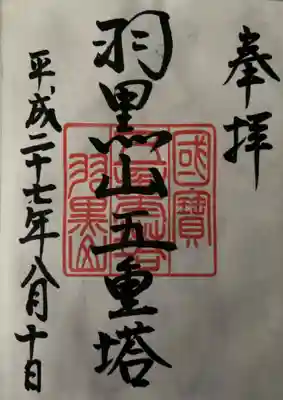 奉拝
羽黒山五重塔
平成二十七年八月十日
國寶
羽黒山